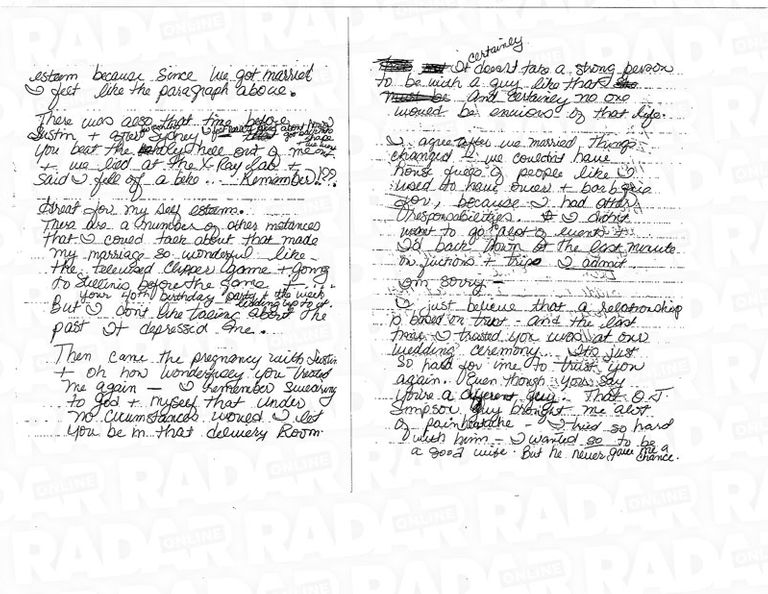 esteem because since we got married
I feel like the paragraph above.
There was also that time before
Justin + after Sydney
you beat the holy hell out of me
+ we lied at the X-Ray lab +
said I fell off a bike... Remember!??
Great for my self esteem.
There are a number of other instances
that I could talk about that made
my marriage so wonderful like -
the televised Clipper game + going
to before the game +
your 40th birthday party + the week
leading up to it.
But I don't like talking about the
past It depressed me.
Then came the pregnancy with Justin
+ oh how wonderfully you treated
me again — I remember swearing
to god + myself that under
no circumstances would I let
you be in that delivery Room.
certainly
It doesnt take a strong person
to be with a guy like that
must be And certainly no one
would be envious of that life.
I agree after we married things
changed - we couldn't have
house fulls of people like I
used to have over + barbque
for, because I had other
responsibilities. I didn't
want to go to alot of events +
I'd back down at the last minute
on fuctions + trips I admit
I'm sorry -
I just believe that a relationship
is based on trust - and the last
time I trusted you was at our
wedding ceremony. It's just
so hard for me to trust you
again. Even though you say
you're a different guy. That O.J.
Simpson guy brought me alot
of pain heartache - I tried so hard
with him - I wanted so to be
a good wife. But he never gave me a
chance.
RADAR
ONLINE